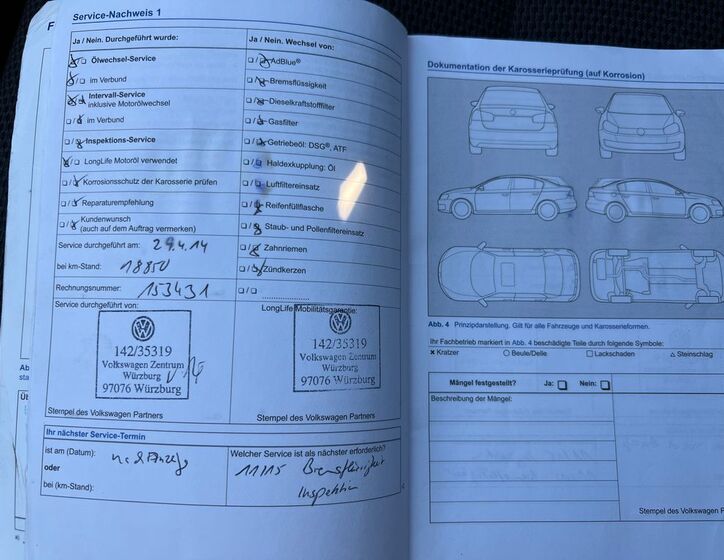 F
Service-Nachweis 1
Ja / Nein. Durchgeführt wurde:
Ölwechsel-Service
im Verbund
Intervall-Service
inklusive Motorölwechsel
im Verbund
Inspektions-Service
LongLife Motoröl verwendet
Korrosionsschutz der Karosserie prüfen
Reparaturempfehlung
Kundenwunsch
(auch auf dem Auftrag vermerken)
Service durchgeführt am: 29.4.14
bei km-Stand: 18850
Rechnungsnummer: 153431
Service durchgeführt von:
142/35319
Volkswagen Zentrum
Würzburg
97076 Würzburg
Stempel des Volkswagen Partners
Ja / Nein. Wechsel von:
AdBlue®
Bremsflüssigkeit
Dieselkraftstofffilter
Gasfilter
Getriebeöl: DSG®, ATF
Haldexkupplung: Öl
Luftfiltereinsatz
Reifenfüllflasche
Staub- und Pollenfiltereinsatz
Zahnriemen
Zündkerzen
LongLife Mobilitätsgarantie:
142/35319
Volkswagen Zentrum
Würzburg
97076 Würzburg
Stempel des Volkswagen Partners
Ihr nächster Service-Termin
ist am (Datum): nach Anzeige
oder
bei (km-Stand):
Welcher Service ist als nächster erforderlich?
11/15 Bremsflüssigkeit
Inspektion
Dokumentation der Karosserieprüfung (auf Korrosion)
Abb. 4 Prinzipdarstellung. Gilt für alle Fahrzeuge und Karosserieformen.
Ihr Fachbetrieb markiert in Abb. 4 beschädigte Teile durch folgende Symbole:
× Kratzer ○ Beule/Delle □ Lackschaden △ Steinschlag
Mängel festgestellt? Ja: □ Nein: □
Beschreibung der Mängel:
Stempel des Volkswagen P